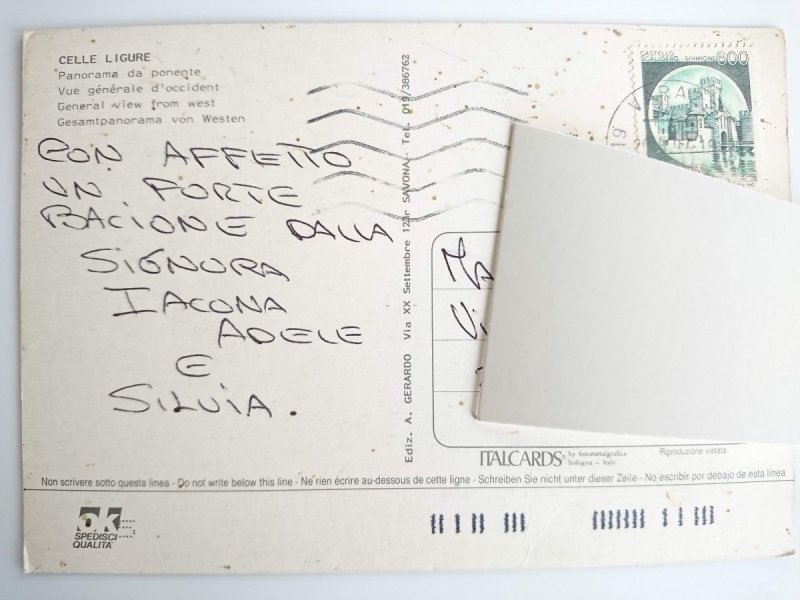 CELLE LIGURE
Panorama da ponente
Vue générale d'occident
General view from west
Gesamtpanorama von Westen
CON AFFETTO
UN FORTE
BACIONE DALLA
SIGNORA
IACONA
ADELE
E
SILVIA.
Ediz. A. GERARDO Via XX Settembre 123r SAVONA - Tel. 019/386762
CASTELLO
SCALIGERO SIRMIONE 600
19
Vi
ITALCARDS® by fotometalgrafica
bologna - Italy
Riproduzione vietata
Non scrivere sotto questa linea - Do not write below this line - Ne rien écrire au-dessous de cette ligne - Schreiben Sie nicht unter dieser Zeile - No escribir por debajo de esta linea
OK
SPEDISCI
QUALITÀ